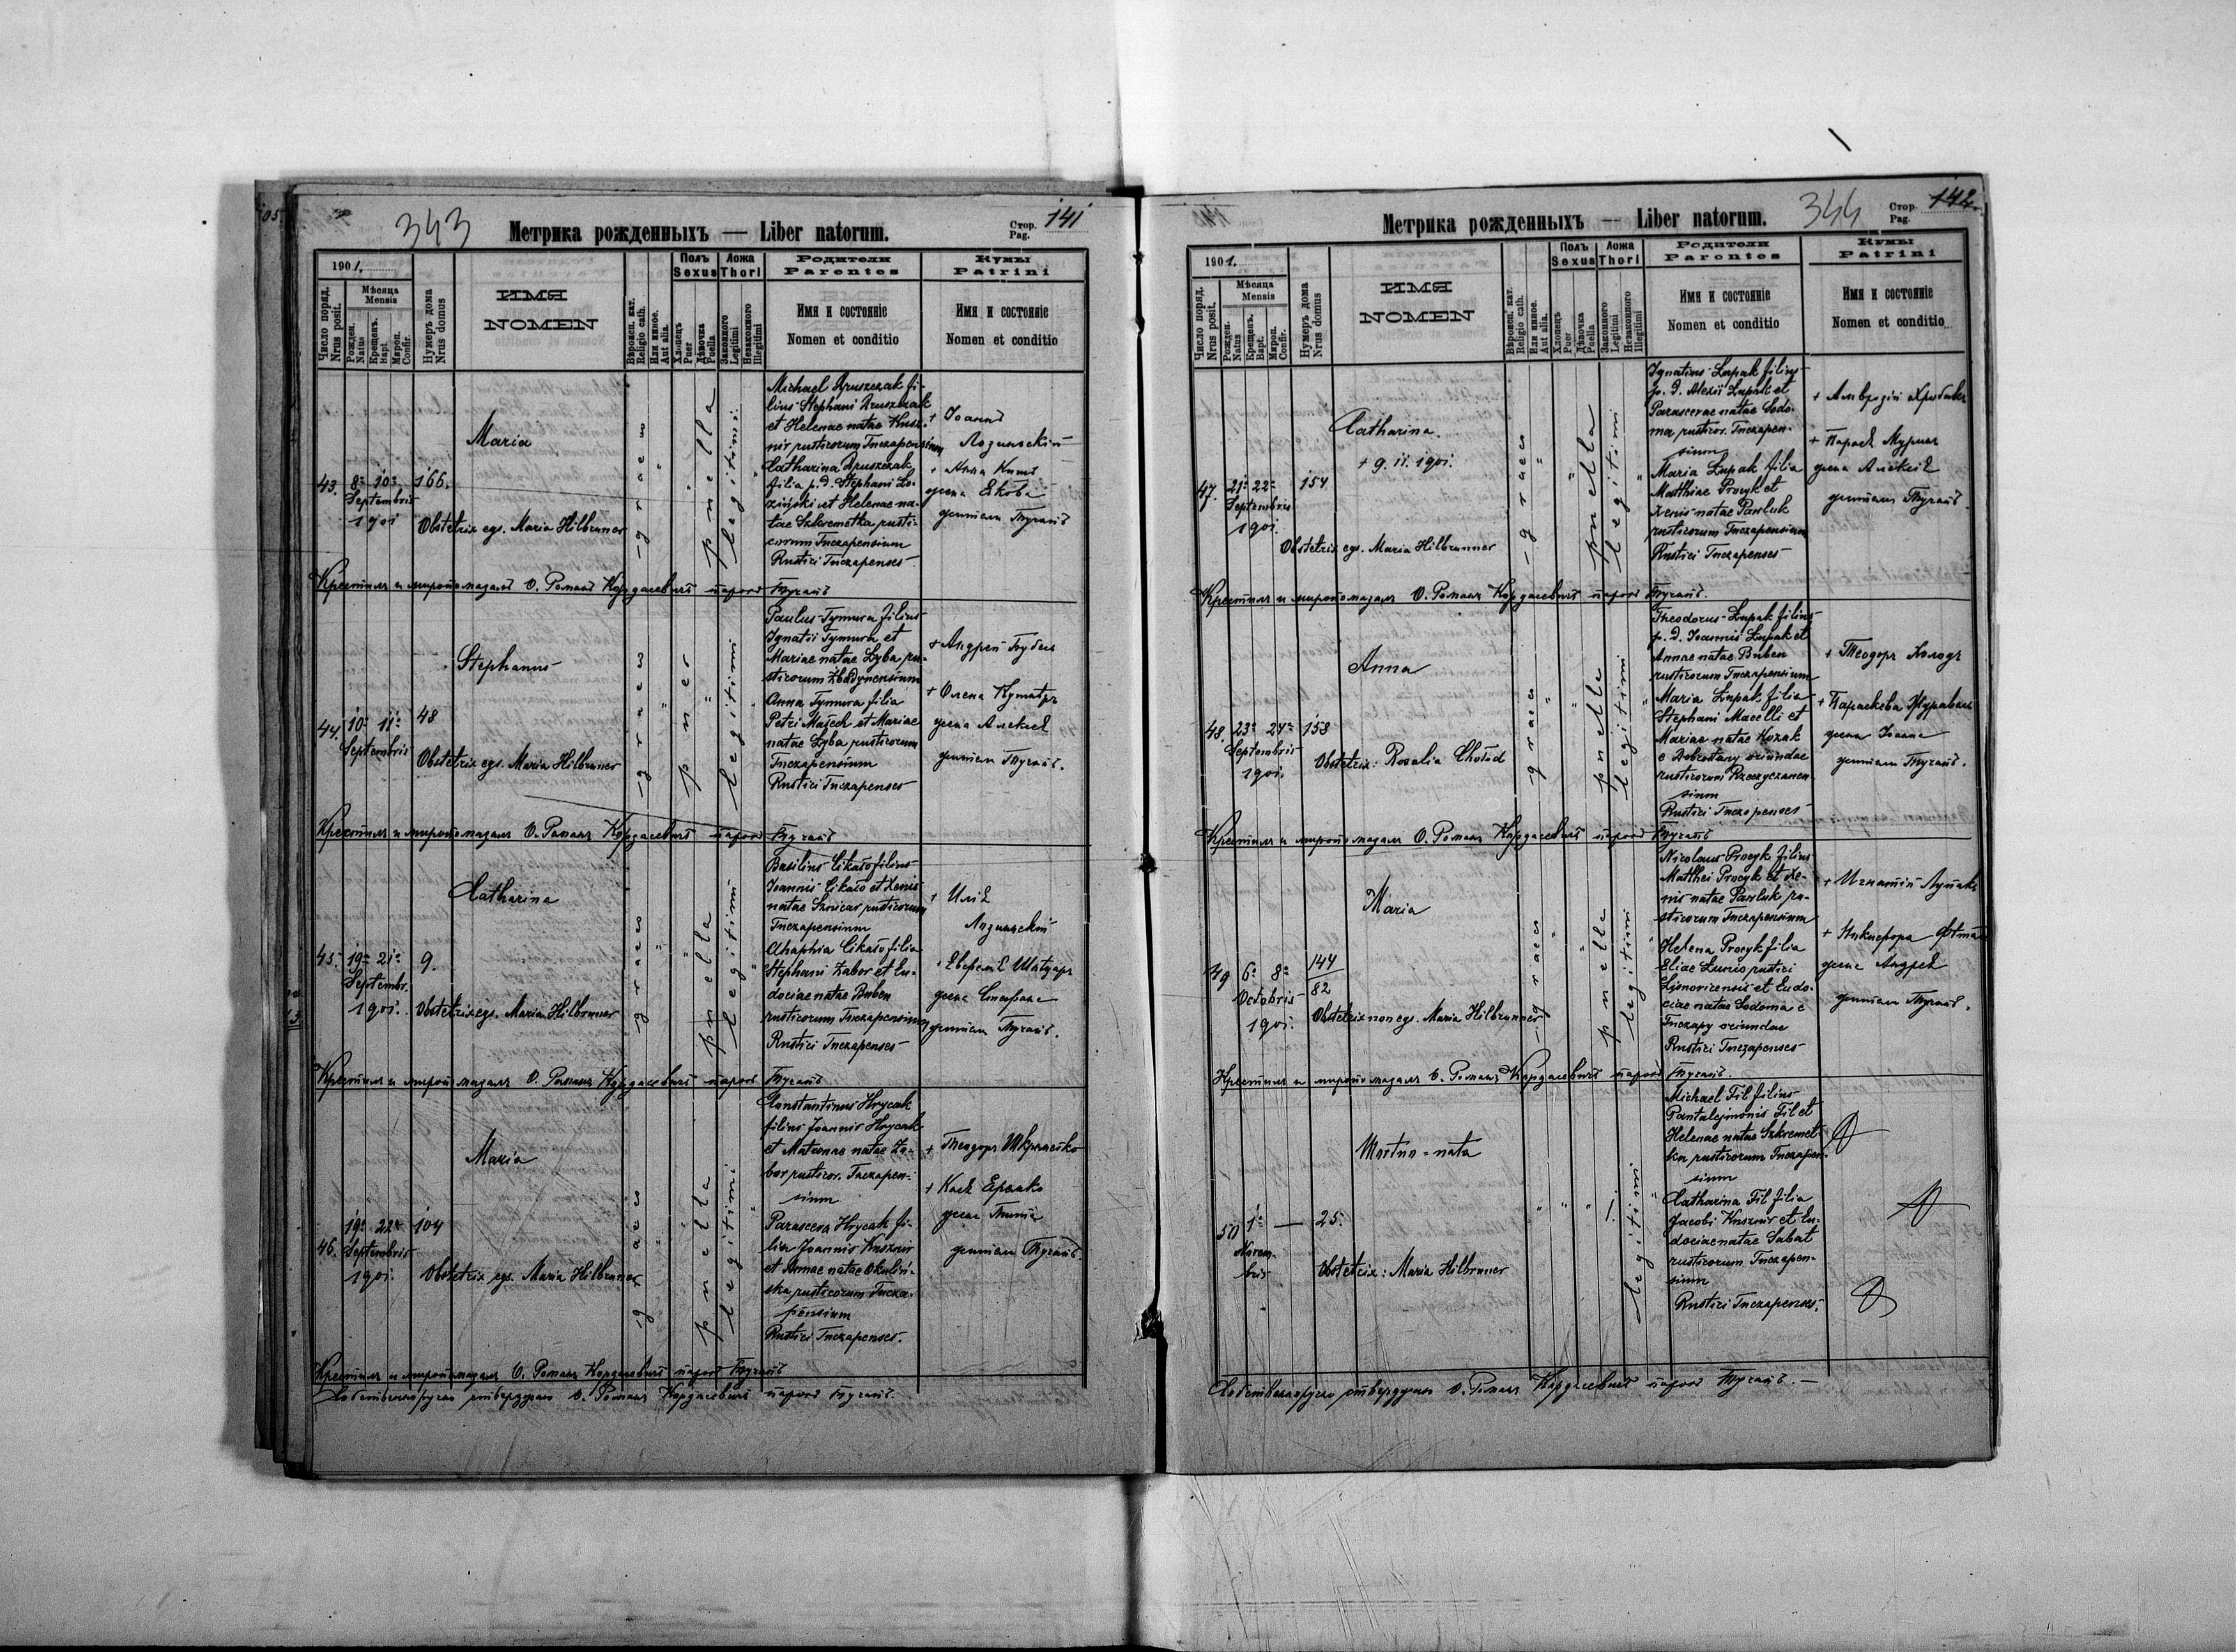 343
Метрика рожденныхъ — Liber natorum.
Стор. Pag. 141
1901.
Число поряд. Nrus posit.
Мѣсяца Mensis
Рожден. Natus
Крещенъ. Bapt.
Мѵроп. Confir.
Нумеръ дома Nrus domus
ИМЯ
NOMEN
Вѣроисп. кат. Religio cath.
Или иное. Aut alia.
Полъ Sexus
Хлопецъ Puer
Дѣвочка Puella
Ложа Thori
Законного Legitimi
Незаконного Illegitimi
Родители Parentes
Имя и состояніе
Nomen et conditio
Кумы Patrini
Имя и состояніе
Nomen et conditio
43.
8a 10a
Septembris
1901
166.
Maria
Obstetrix egs. Maria Hilbrunner
graeco
puella
legitimi
Michael Druszczak fi-
lius Stephani Druszczak
et Helenae natae Kusz-
nir rusticorum Tuczapensium
Catharina Druszczak
filia p. d. Stephani Ło-
ziński et Helenae na-
tae Szkremetka rusti-
corum Tuczapensium
Rustici Tuczapenses
+ Іоаннъ
Лозиньскій
+ Анна
жена Якова
Крестилъ и миропомазалъ О. Романъ Кордасевичъ парохъ Тучапъ
44.
10a 11a
Septembris
48
Stephanus
Obstetrix egs. Maria Hilbruner
graeco
puer
legitimi
Paulus Tymura filius
Ignatii Tymura et
Mariae natae Łyba ru-
sticorum
Anna Tymura filia
Petri et Mariae
natae Łyba rusticorum
Tuczapensium
Rustici Tuczapenses
+ Андрей
+ Олена
жена Алексѣя
Крестилъ и миропомазалъ О. Романъ Кордасевичъ парохъ Тучапъ
45.
19a 21a
Septembr.
1901.
9.
Catharina
Obstetrix egs. Maria Hilbruner
graeco
puella
legitimi
Basilius Cikało filius
Joannis Cikało et Xenis
natae rusticorum
Tuczapensium
Ahaphia Cikało filia
Stephani Zabor et Eu-
dociae natae Buben
rusticorum Tuczapensium
Rustici Tuczapenses
+ Илія
Лозиньскій
жена Стефана
Крестилъ и миропомазалъ О. Романъ Кордасевичъ парохъ Тучапъ
46.
19a 22a
Septembris
1901.
104
Maria
Obstetrix egs. Maria Hilbruner
graeco
puella
legitimi
Constantinus Hrycak
filius Joannis Hrycak
et Matronae natae Za-
bor rusticor. Tuczapen-
sium
Parasceva Hrycak fi-
lia Joannis Kusznir
et Annae natae Okuliń-
ska rusticorum Tucza-
pensium
Rustici Tuczapenses.
+ Теодоръ
жена
Крестилъ и миропомазалъ О. Романъ Кордасевичъ парохъ Тучапъ
О. Романъ Кордасевичъ парохъ Тучапъ.
344
Метрика рожденныхъ — Liber natorum.
Стор. Pag. 142.
1901.
Число поряд. Nrus posit.
Мѣсяца Mensis
Рожден. Natus
Крещенъ. Bapt.
Мѵроп. Confir.
Нумеръ дома Nrus domus
ИМЯ
NOMEN
Вѣроисп. кат. Religio cath.
Или иное. Aut alia.
Полъ Sexus
Хлопецъ Puer
Дѣвочка Puella
Ложа Thori
Законного Legitimi
Незаконного Illegitimi
Родители Parentes
Имя и состояніе
Nomen et conditio
Кумы Patrini
Имя и состояніе
Nomen et conditio
47.
21a 22a
Septembris
1901.
154
Catharina.
+ 9. 11. 1901.
Obstetrix egs. Maria Hilbrunner
graeco
puella
legitimi
Ignatius Łupak filius
p. d. Alexii Łupak et
Parascevae natae Sodo-
ma rusticor. Tuczapen-
sium
Maria Łupak filia
Matthiae Procyk et
Xenis natae Pawluk
rusticorum Tuczapensium
Rustici Tuczapenses
жена Алексія
Крестилъ и миропомазалъ О. Романъ Кордасевичъ парохъ Тучапъ.
48.
23a 24a
Septembris
1901.
158
Anna
Obstetrix: Rosalia Chołod
graeco
puella
legitimi
Theodorus Łupak filius
p. d. Joannis Łupak et
Annae natae Buben
rusticorum Tuczapensium
Maria Łupak filia
Stephani Macelli et
Mariae natae Kozak
e Dobrostany oriundae
rusticorum Rzeczyczanen-
sium
Rustici Tuczapenses
+ Теодоръ Холодъ
+ Параскева
жена Іоанна
Крестилъ и миропомазалъ О. Романъ Кордасевичъ парохъ Тучапъ
49
6a 8a
Octobris
1901.
144
82
Maria
Obstetrix non egs. Maria Hilbrunner
graeco
puella
legitimi
Nicolaus Procyk filius
Matthei Procyk et Xe-
nis natae Pawluk ru-
sticorum Tuczapensium
Helena Procyk filia
Eliae rustici
et Eudo-
ciae natae Sodoma e
Tuczapy oriundae
Rustici Tuczapenses
+ Игнатій Лупакъ
жена Андрея
Крестилъ и миропомазалъ О. Романъ Кордасевичъ парохъ Тучапъ.
50
1a —
Novem-
bris
25.
Mortuo-nata
Obstetrix: Maria Hilbruner
legitimi
Michael Fil filius
Pantalejmonis Fil et
Helenae natae Szkremet-
ka rusticorum Tuczapen-
sium
Catharina Fil filia
Jacobi Kusznir et Eu-
dociae natae Sabat
rusticorum Tuczapen-
sium
Rustici Tuczapenses.
О. Романъ Кордасевичъ парохъ Тучапъ. —